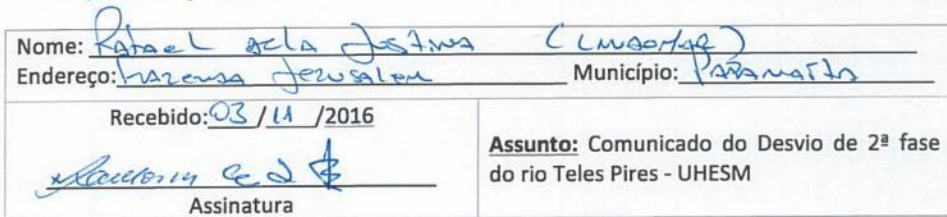 Nome: Rafael dela Justina (Lindomar)
Endereço: Fazenda Jerusalem Município: Paranaíta
Recebido: 03 / 11 /2016
Assinatura
Assunto: Comunicado do Desvio de 2ª fase
do rio Teles Pires - UHESM